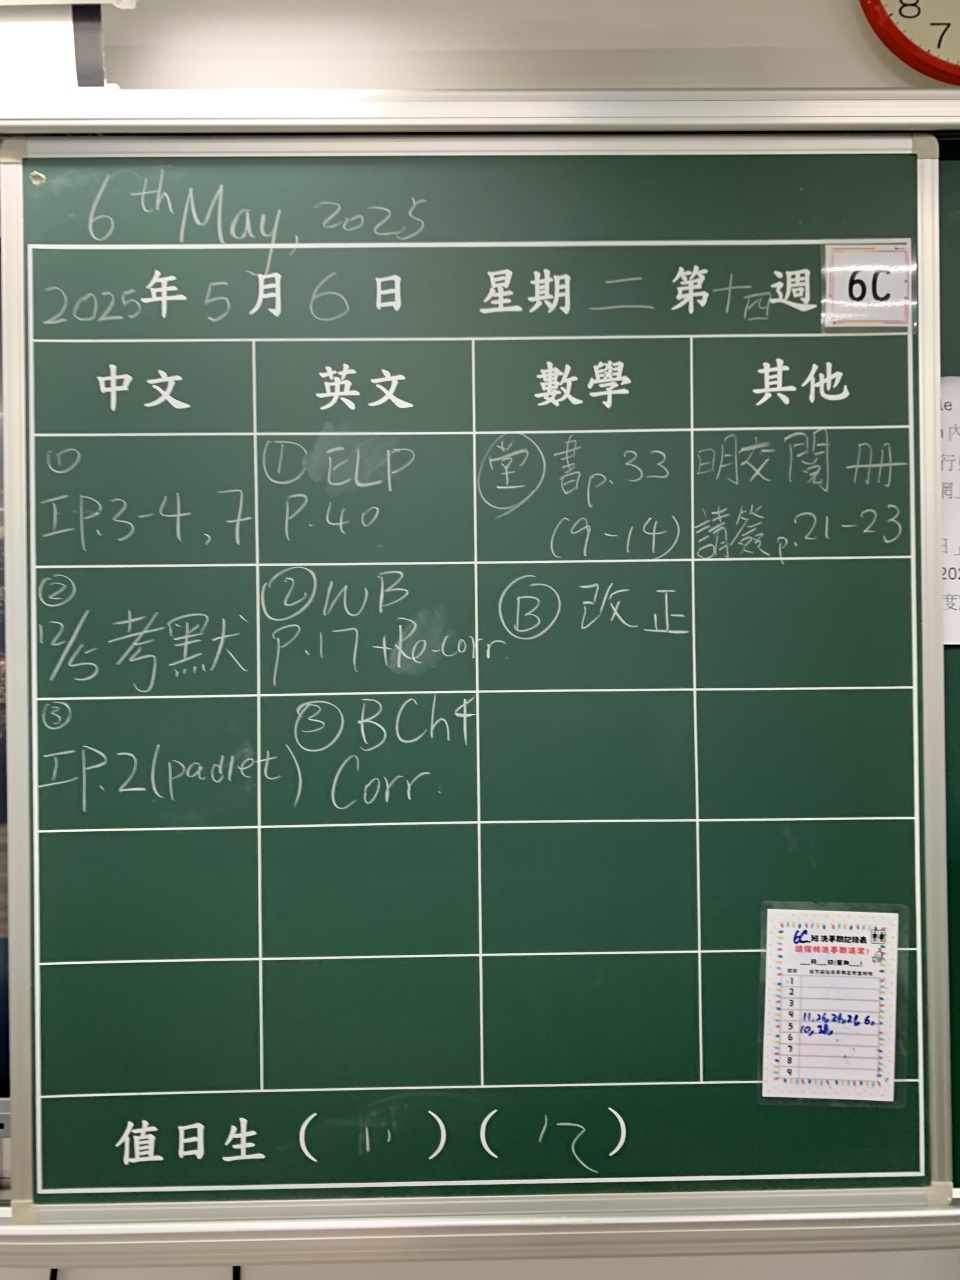 8
7
6th May, 2025
2025年5月6日 星期二 第十四週 6C
中文 英文 數學 其他
① IP.3-4, 7
① ELP P.40
堂 書p.33 (9-14)
明交閱冊 請簽p.21-23
② 12/5 考默
② WB P.17 +Re-corr.
B 改正
③ IP.2 (padlet)
③ BCh4 Corr.
6C
1
2
3
4 11, 25, 24, 26, 6,
5 10, 28,
6
7
8
9
值日生 ( 11 ) ( 12 )